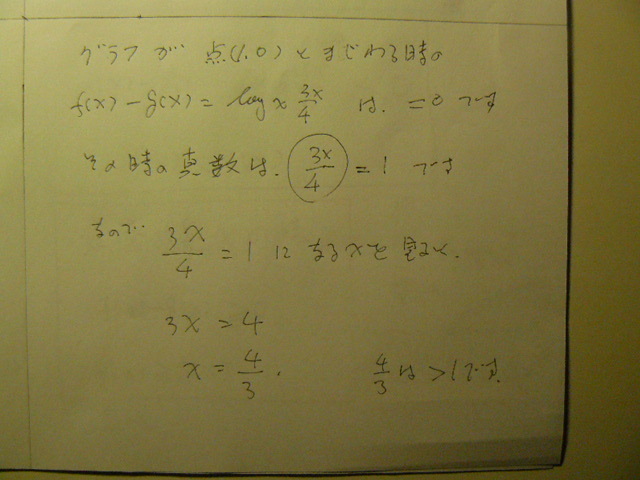 グラフが 点(1,0)とまじわる時の
f(x)-g(x)=log x 3x/4 は、=0です
その時の真数は、3x/4=1 です
なので 3x/4=1になるxを見ると、
3x=4
x=4/3. 4/3は>1です。